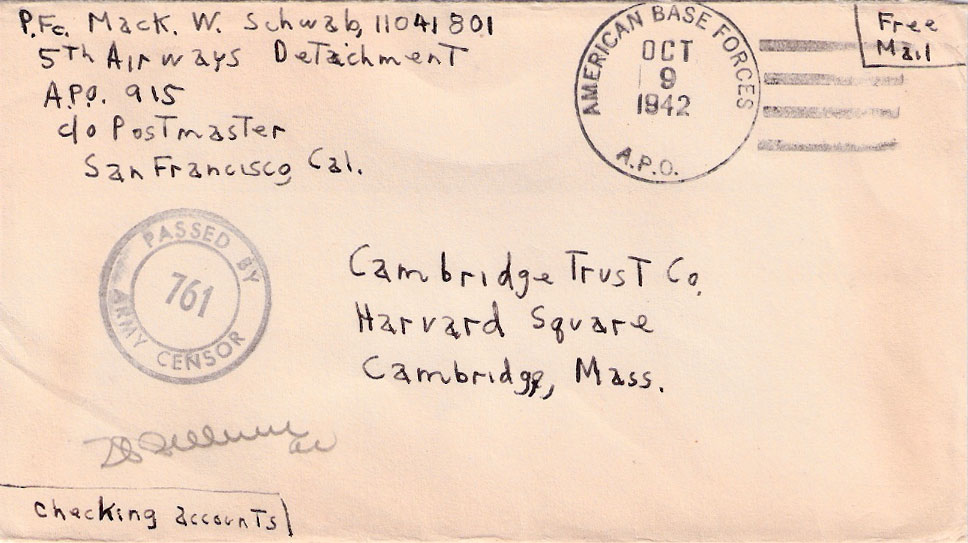 P.Fc. Mack. W. Schwab, 11041801
5Th Airways DeTachmenT
A.P.O. 915
c/o PosTmasTer
San Francisco Cal.
AMERICAN BASE FORCES
OCT
9
1942
A.P.O.
Free
Mail
PASSED BY
761
ARMY CENSOR
Cambridge TrusT Co.
Harvard Square
Cambridge, Mass.
checking accounTs